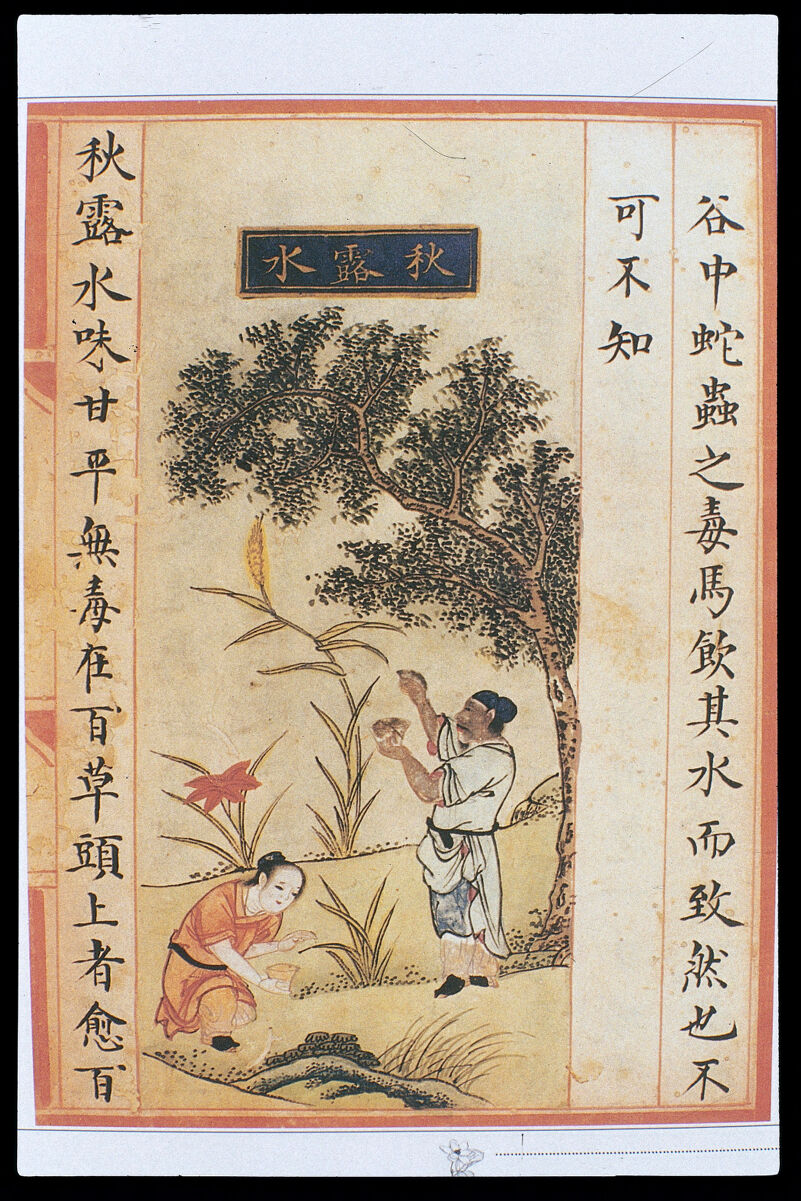 谷中蛇蟲之毒馬飲其水而致然也不
可不知
秋露水
秋露水味甘平無毒在百草頭上者愈百